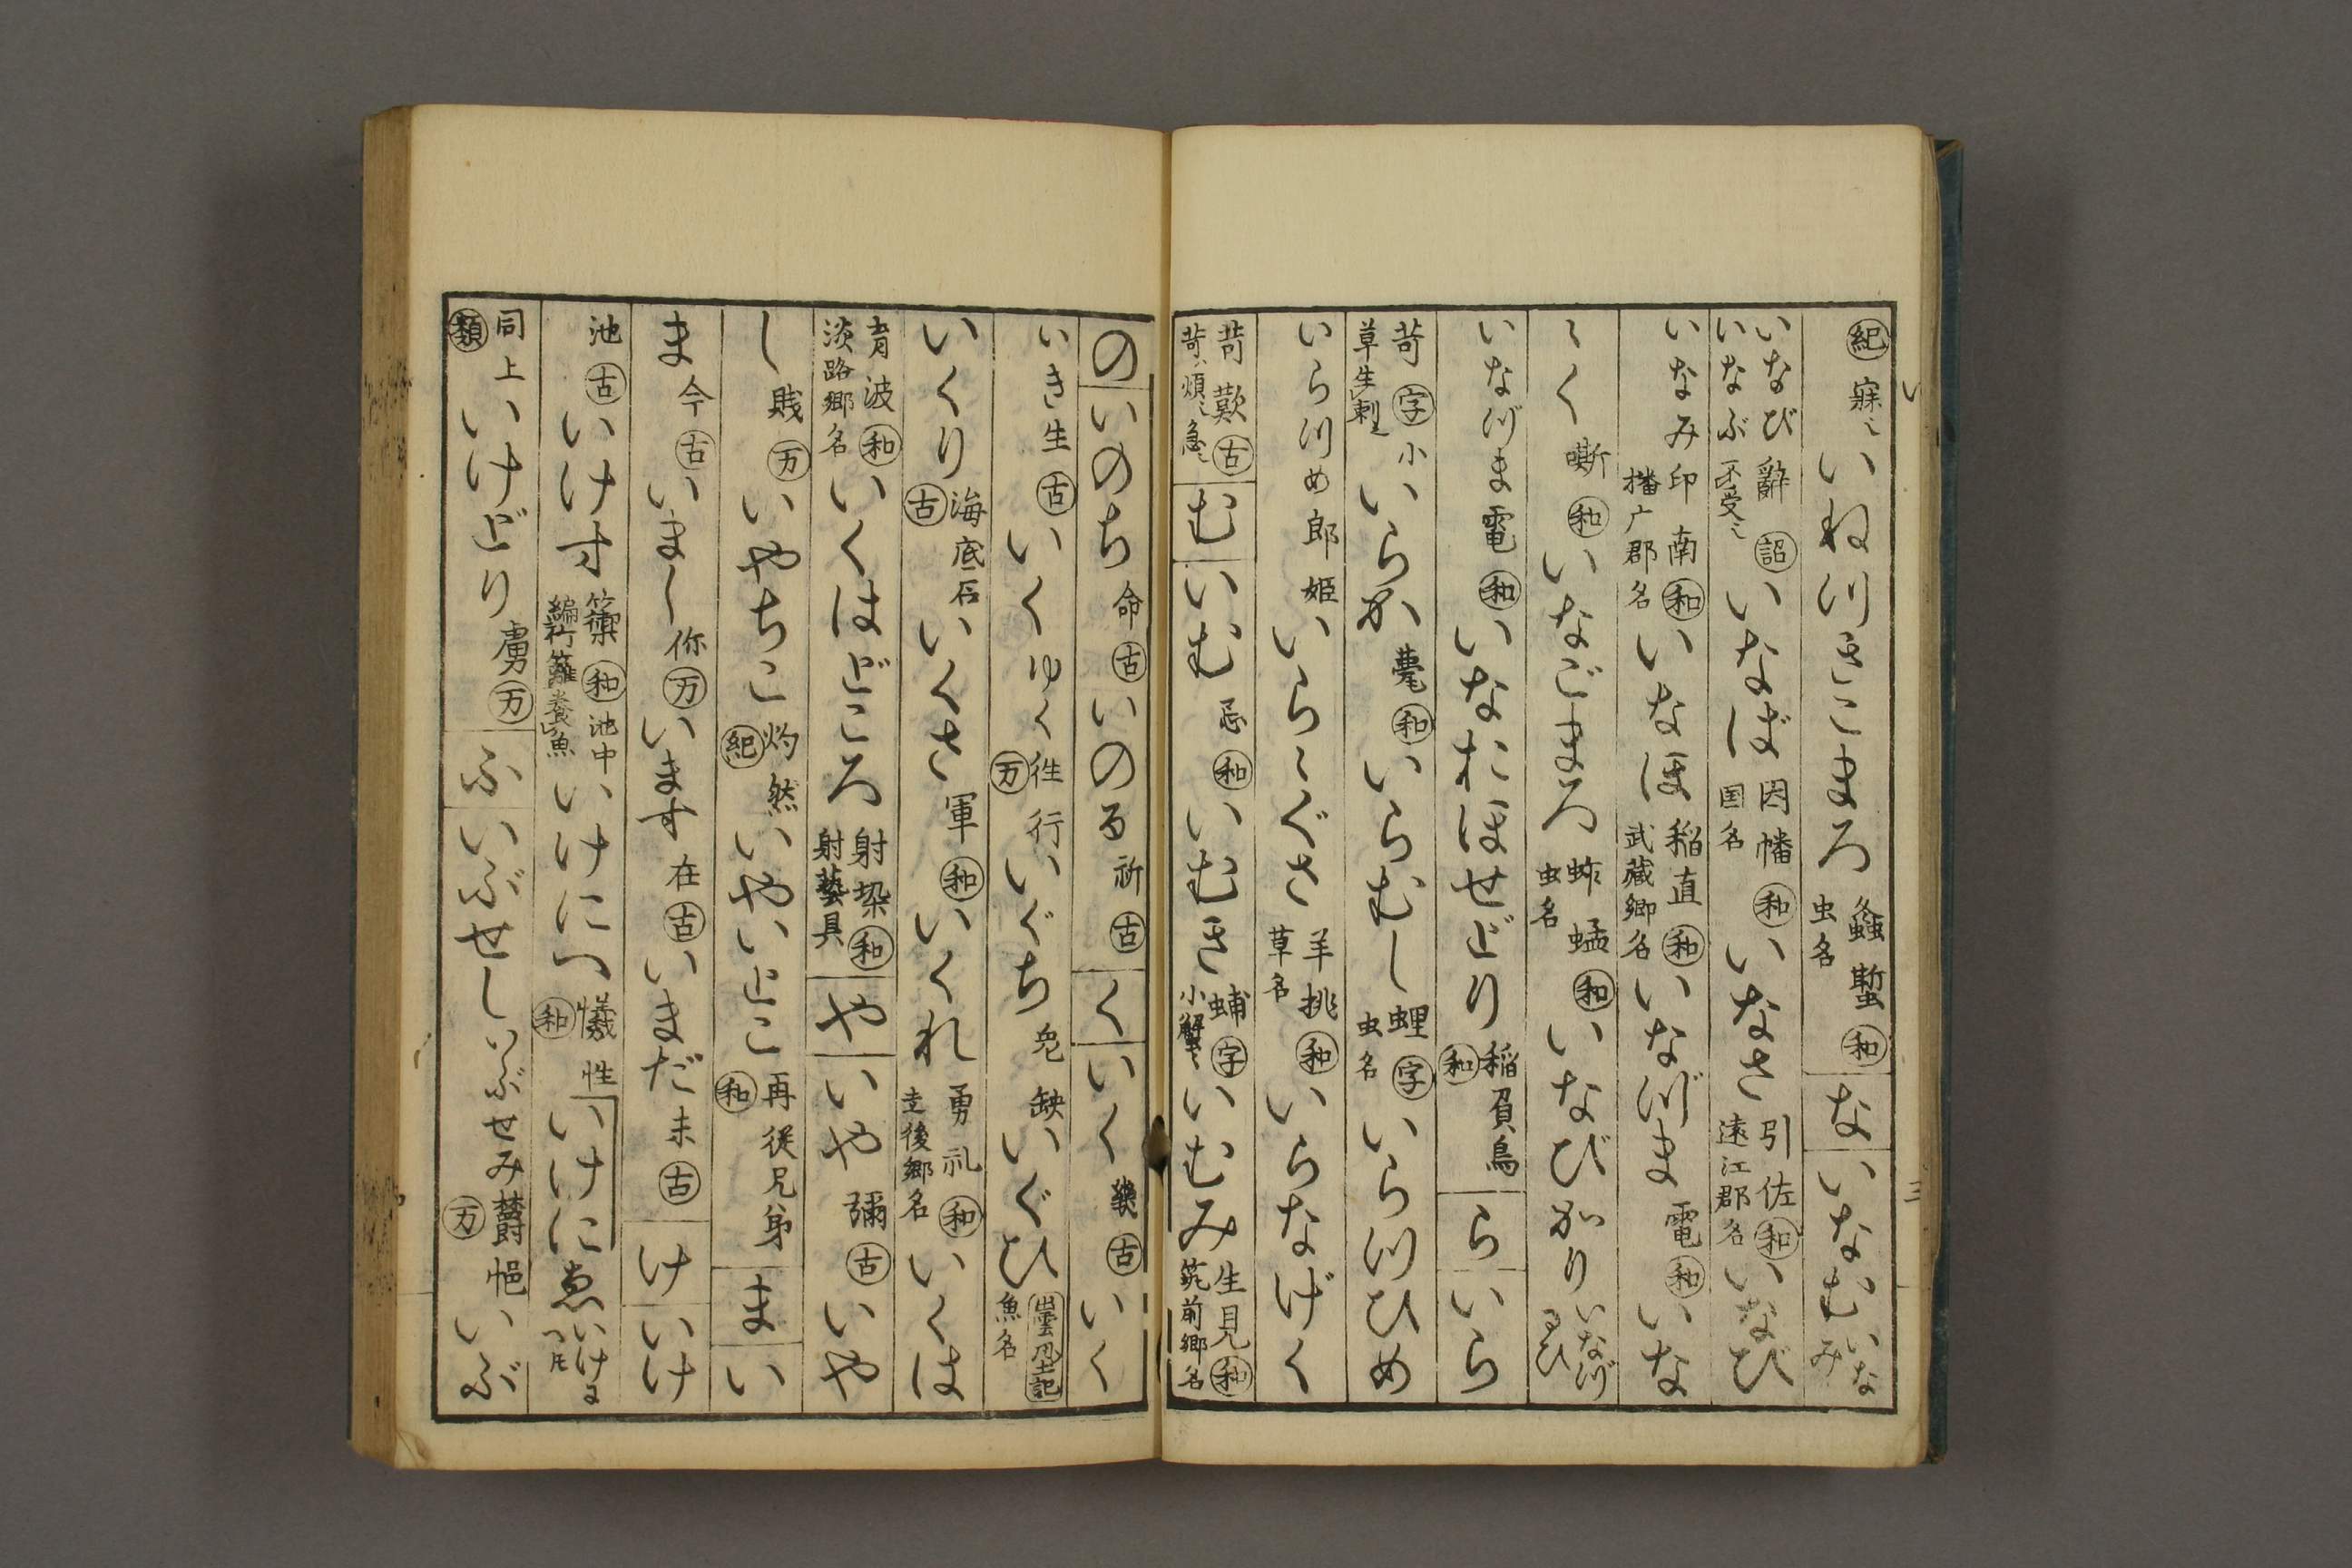 紀 寐〻 いねつきこまろ 螽蟴 和 虫名 な いなむ いなみ
いなび いなぶ 辭 詔 不受〻 いなば 因幡 和 国名 いなさ 引佐 和 遠江郡名 いなび
いなみ 印南 和 播广郡名 いなほ 稲直 和 武藏郷名 いなづま 電 和 いな
〻く 嘶 和 いなごまろ 蚱蜢 和 虫名 いなびかり いなづるひ
いなづま 電 和 いなおほせどり 稲負鳥 和 ら いら
苛 字 小草生刺 いらか 甍 和 いらむし 蛓 字 虫名 いらつひめ
いらつめ 郎姫 いら〻ぐさ 羊桃 和 草名 いらなげく
苛歎 古 苛〻煩〻急〻 む いむ 忌 和 いむき 蜅 字 小蟹〻 いむみ 生見 和 筑前郷名
の いのち 命 古 いのる 祈 古 く いく 幾 古 いく
いき 生 古 いく ゆく 徃行 万 いぐち 兔缺 いぐひ 魚名
いくり 海底石 古 いくさ 軍 和 いくれ 勇礼 和 郷名 いくは
育波 和 淡路郷名 いくはどころ 射垜 和 射藝具 や いや 彌 古 いや
し 賎 万 いやちこ 灼然 紀 いやいとこ 再従兄弟 和 ま い
ま 今 古 いまし 你 万 います 在 古 いまだ 未 古 け いけ
池 古 いけす 籞 和 池中編竹籬養魚 いけにへ 犠牲 和 いけにゑ
同上 類 いけどり 虜 万 ふ いぶせし いぶせみ 欝悒 万 いぶ